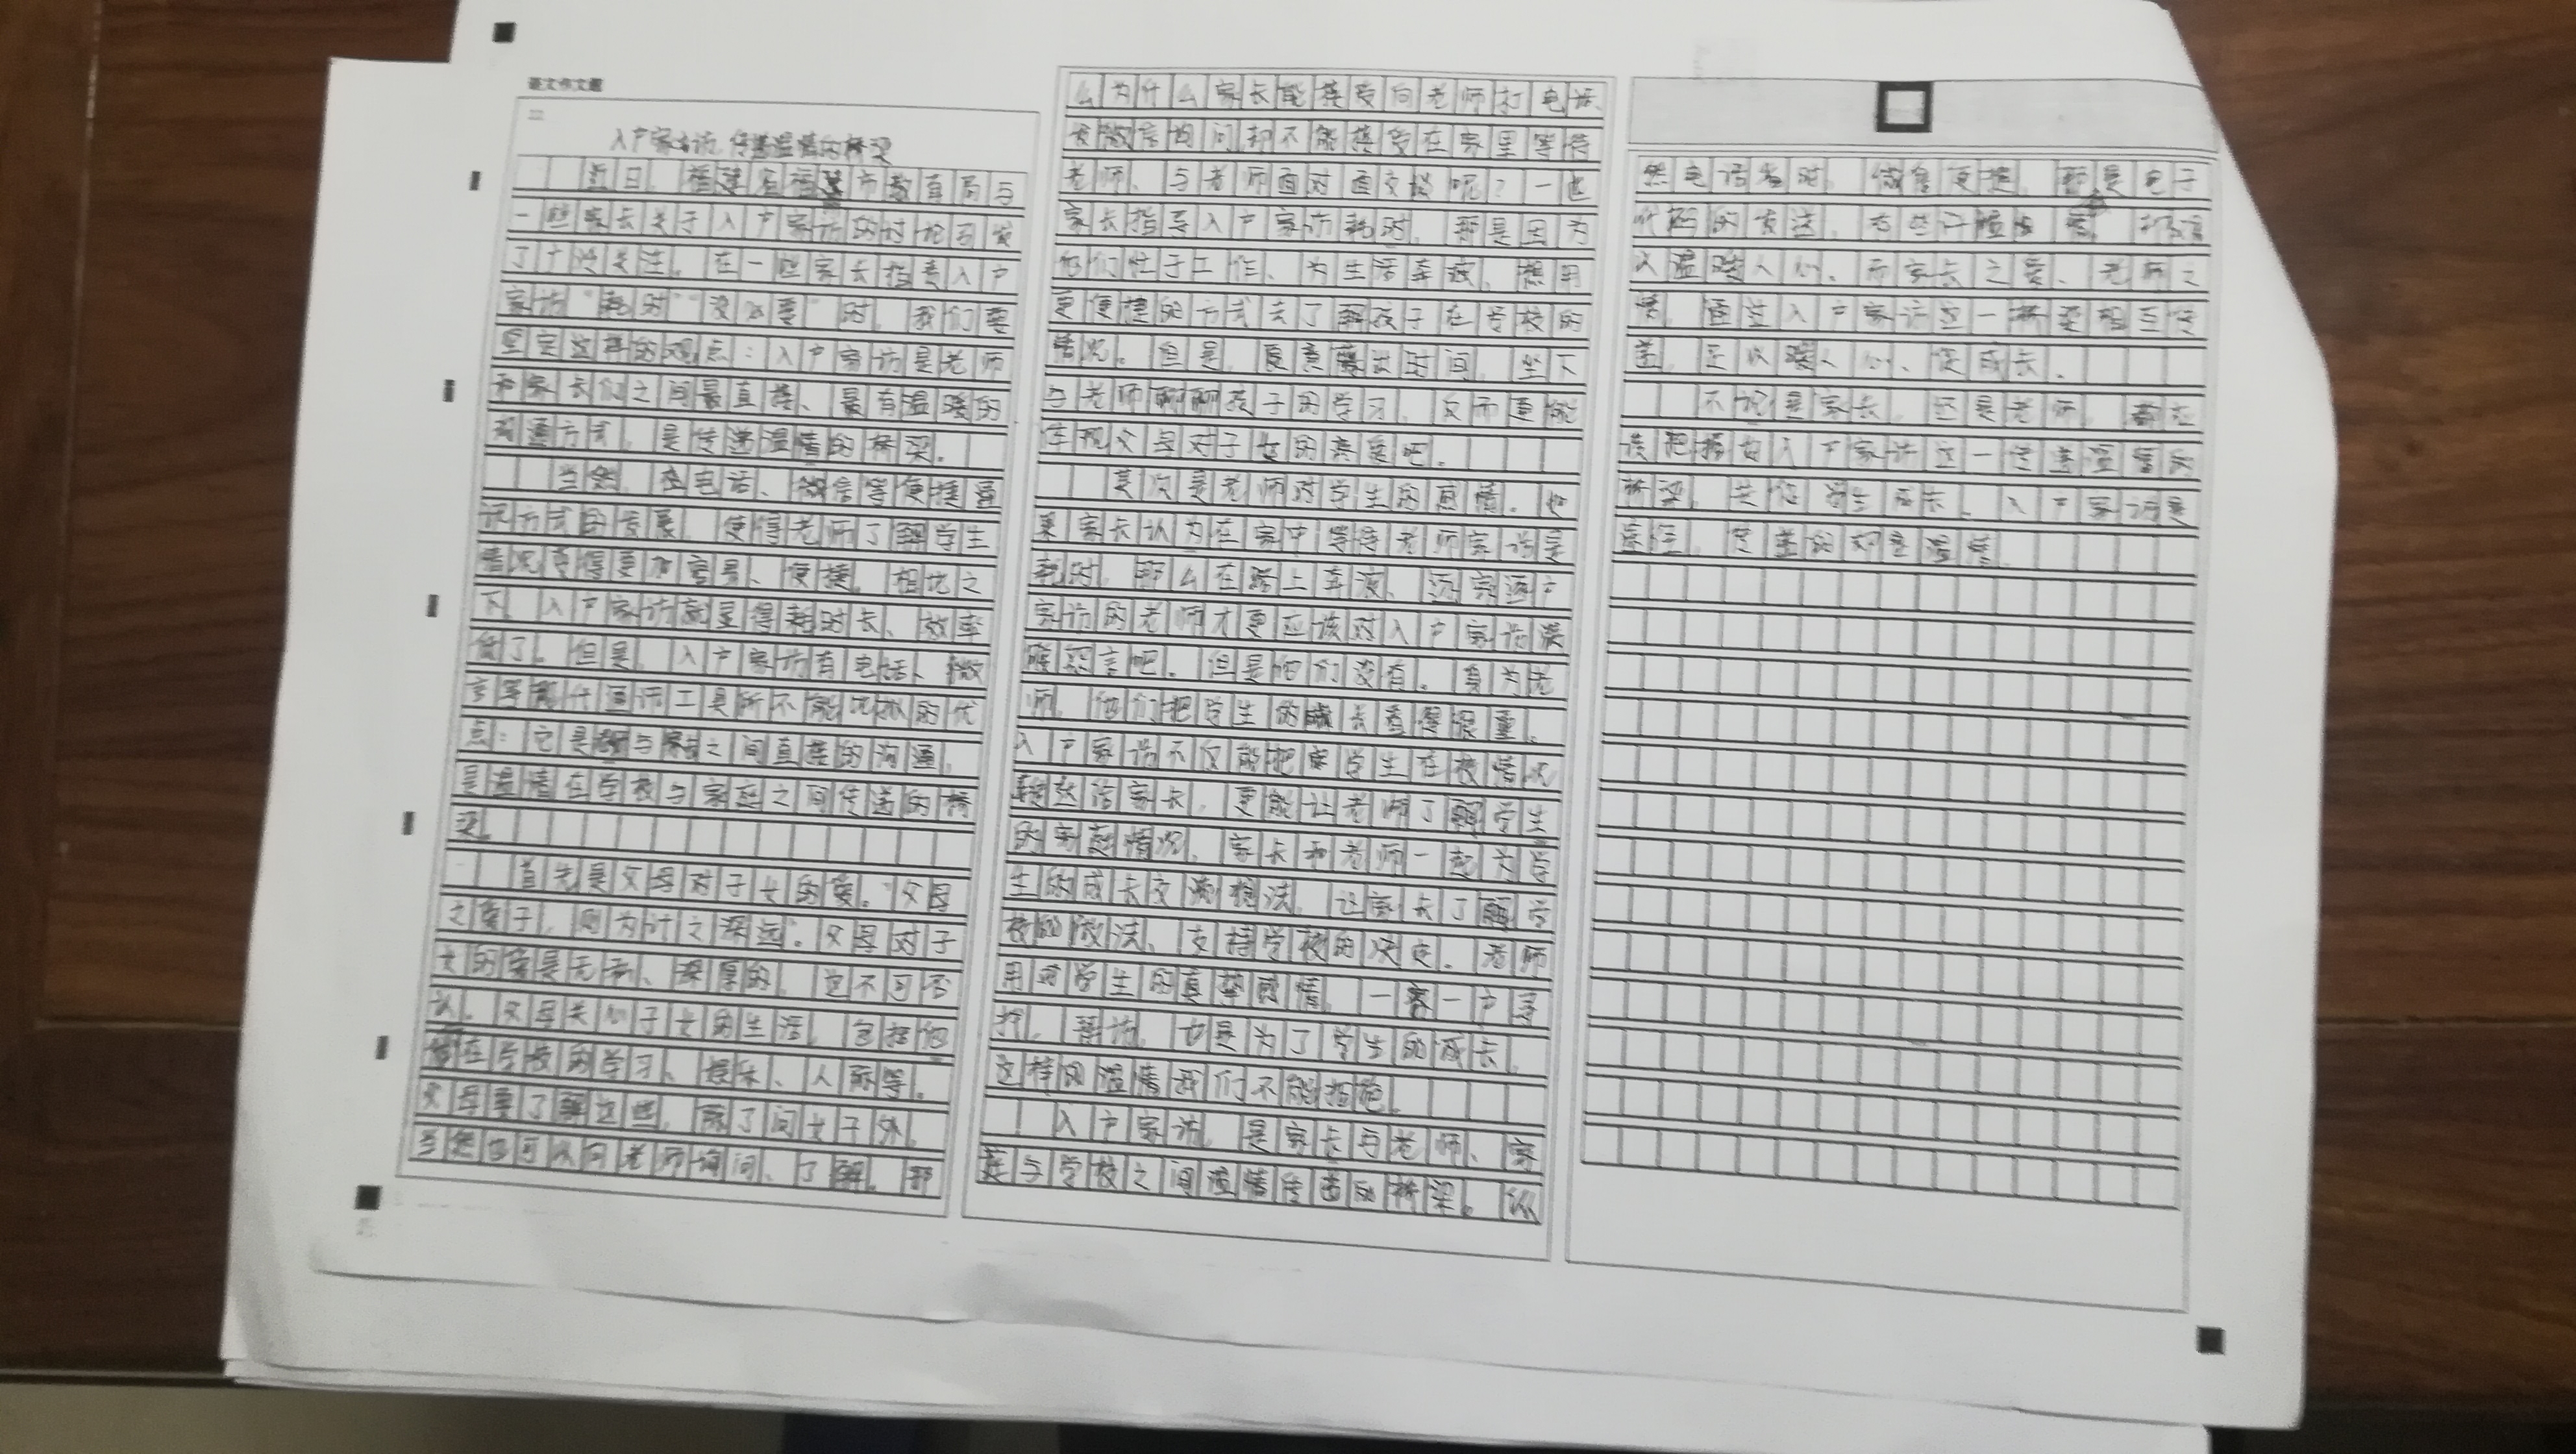 语文作文题
22
入户家访,传递温情的桥梁
近日,福建省福 市教育局与
一些家长关于入户家访的讨论引发
了广泛关注。在一些家长指责入户
家访“耗时”“没必要”时,我们要
坚定这样的观点:入户家访是老师
和家长们之间最直接、最有温暖的
沟通方式,是传递温情的桥梁。
当然,在电话、微信等便捷通
讯方式的发展,使得老师了解学生
情况变得更加容易、便捷。相比之
下,入户家访就显得耗时长、效率
低了。但是,入户家访有电话、微
信等 什通讯工具所不能比拟的优
点:它是 与 之间直接的沟通,
是温情在学校与家庭之间传递的桥
梁。
首先是父母对子女的爱。“父母
之爱子,则为计之深远”。父母对子
女的爱是无私、深厚的,这不可否
认。父母关心子女的生活,包括他
们在学校的学习、娱乐、人际等。
父母要了解这些,除了问女子外,
当然也可以向老师询问、了解。那
么为什么家长能接受向老师打电话、
发微信询问,却不能接受在家里等待
老师、与老师面对面交谈呢?一些
家长指责入户家访耗时,那是因为
他们忙于工作、为生活奔波,想用
更便捷的方式去了解孩子在学校的
情况。但是,愿意 出时间,坐下
与老师聊聊孩子的学习,反而更能
体现父母对子女的亲爱吧。
其次是老师对学生的真情。如
果家长认为在家中等待老师家访是
耗时,那么在路上奔波、逐家逐户
家访的老师才更应该对入户家访满
腹怨言吧。但是他们没有。身为老
师,他们把学生的成长看得很重。
入户家访不仅能把 学生在校情况
转达给家长,更能让老师了解学生
的家庭情况,家长和老师一起为学
生的成长交流想法,让家长了解学
校的做法、支持学校的决定。老师
用对学生的真挚感情,一家一户寻
找、拜访,也是为了学生的成长,
这样的温情我们不能指责。
入户家访,是家长与老师、家
庭与学校之间温情传递的桥梁。纵
然电话省时,微信更捷,那是电子
代码的发送,有些许 情,
以温暖人心。而家长之爱、老师之
情,通过入户家访这一桥梁相互传
递,足以暖人心、促成长。
不论是家长,还是老师,都应
该把握好入户家访这一传递温情的
桥梁,共促学生成长。入户家访是
途径,传递的却是温情。